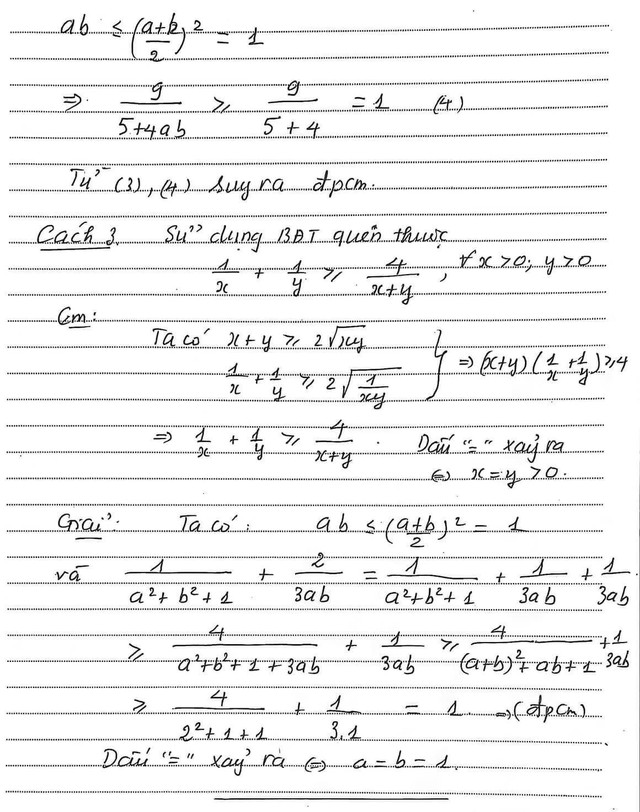 ab ≤ (a+b/2)² = 1
⇒ 9/(5+4ab) ≥ 9/(5+4) = 1 (4)
Từ (3), (4) suy ra đpcm.
Cách 3. Sử dụng BĐT quen thuộc
1/x + 1/y ≥ 4/(x+y), ∀x>0; y>0
Cm:
Ta có x+y ≥ 2√xy
1/x + 1/y ≥ 2√(1/xy) } ⇒ (x+y)(1/x + 1/y) ≥ 4
⇒ 1/x + 1/y ≥ 4/(x+y). Dấu "=" xảy ra
⇔ x=y>0.
Giải: Ta có: ab ≤ (a+b/2)² = 1
và 1/(a²+b²+1) + 2/(3ab) = 1/(a²+b²+1) + 1/(3ab) + 1/(3ab)
≥ 4/(a²+b²+1+3ab) + 1/(3ab) ≥ 4/((a+b)²+ab+1) + 1/(3ab)
≥ 4/(2²+1+1) + 1/(3.1) = 1. ⇒ (đpcm)
Dấu "=" xảy ra ⇔ a=b=1.